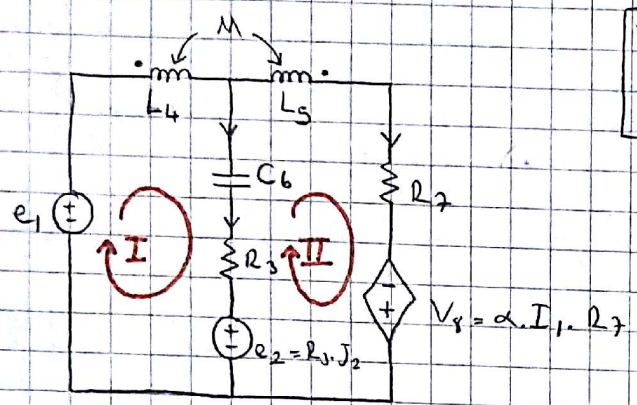 M
L4
L5
C6
R7
e1
I
R3
II
V8 = α.I1.R7
e2 = R3.J2